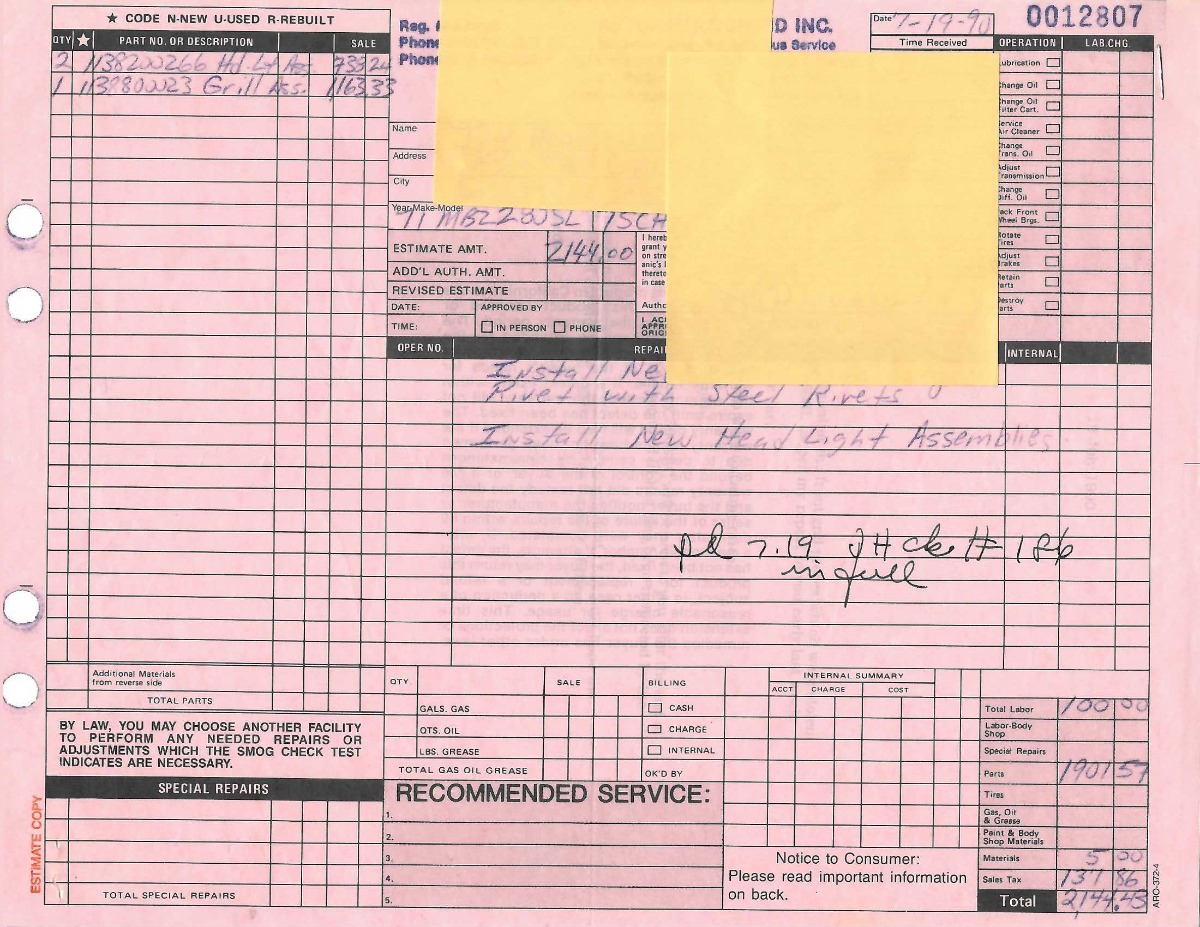 ★ CODE N-NEW U-USED R-REBUILT
QTY ★ PART NO. OR DESCRIPTION SALE
2 1138200266 Hd. Lt Ass.
1 Grill Ass. 1163.33
Reg.
Phone
Phone
D INC.
us Service
Date 7-19-90
Time Received
0012807
OPERATION LAB.CHG.
Lubrication
Change Oil
Change Oil
Filter Cart.
Service
Air Cleaner
Change
Trans. Oil
Adjust
Transmission
Change
Diff. Oil
Pack Front
Wheel Brgs.
Rotate
Tires
Adjust
Brakes
Retain
Parts
Destroy
Parts
Name
Address
City
Year-Make-Model
71 MBZ 280SL 75CH
ESTIMATE AMT. 2144.00
ADD'L AUTH. AMT.
REVISED ESTIMATE
DATE: APPROVED BY
TIME: IN PERSON PHONE
I hereb
grant y
on stre
anic's l
thereto
in case
Autho
I AC
APPR
ORIG
OPER NO. REPAI INTERNAL
Install Ne
Rivet with Steel Rivets
Install New Head Light Assemblies.
pd 7.19 JH ck # 186
in full
Additional Materials
from reverse side
TOTAL PARTS
BY LAW, YOU MAY CHOOSE ANOTHER FACILITY
TO PERFORM ANY NEEDED REPAIRS OR
ADJUSTMENTS WHICH THE SMOG CHECK TEST
INDICATES ARE NECESSARY.
SPECIAL REPAIRS
TOTAL SPECIAL REPAIRS
ESTIMATE COPY
QTY. SALE BILLING
GALS. GAS CASH
QTS. OIL CHARGE
LBS. GREASE INTERNAL
TOTAL GAS OIL GREASE OK'D BY
RECOMMENDED SERVICE:
1.
2.
3.
4.
5.
INTERNAL SUMMARY
ACCT CHARGE COST
Notice to Consumer:
Please read important information
on back.
Total Labor 100 00
Labor-Body
Shop
Special Repairs
Parts 1901 57
Tires
Gas, Oil
& Grease
Paint & Body
Shop Materials
Materials 5 00
Sales Tax 137 86
Total 2144.43
ARO-372-4